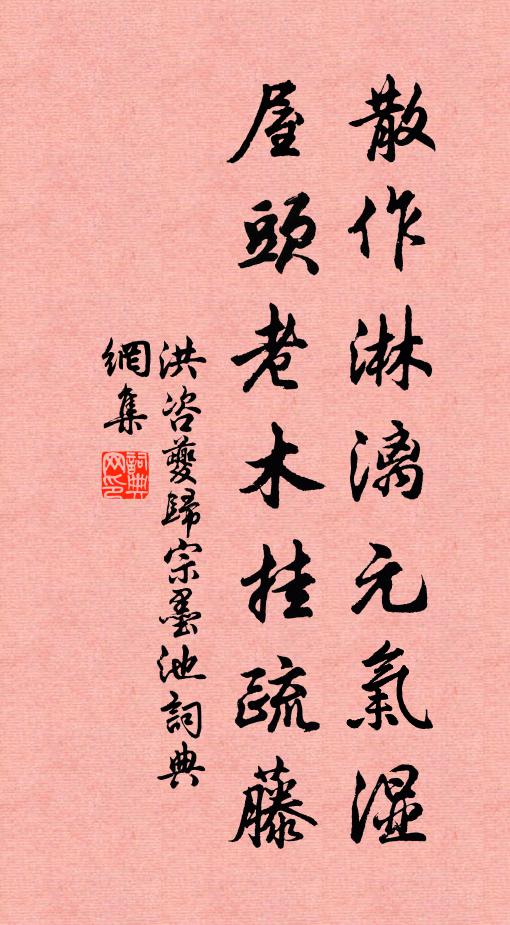 散作淋漓元氣湿
屋頭老木挂疏藤
洪咨夔歸宗墨池詞典
網集
詞典
网印